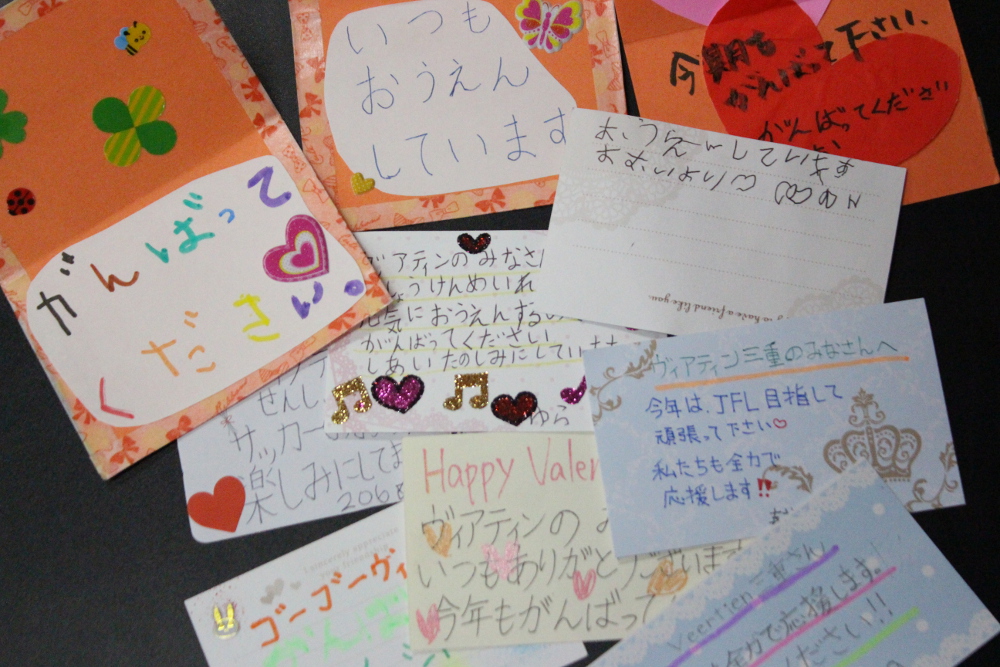 がんばって
ください。
いつも
おうえん
しています
今期も
がんばって下さい、
がんばってください
おうえんしています
ヴィアティンのみなさ
ょうけんめいれ
元気におうえんするの
がんばってください
しあいたのしみにしています
ゆら
ヴィアティン三重のみなさんへ
今年は、JFL目指して
頑張って下さい♡
私たちも全力で
応援します!!
せんし
サッカー
楽しみにしてま
Happy Valen
ヴィアティンの
いつもありがとうございま
今年もがんばって
ゴーゴーヴィ
Veertien三重さん
全力で応援します。
ださい!!